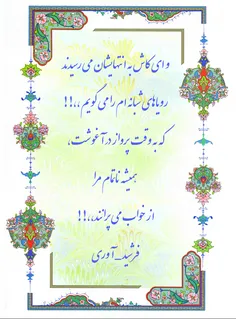 و ای کاش به انتهایشان می رسیدند
رویاهای شبانه ام را می گویم ،،،!!
که به وقت پرواز در آغوشت،
همیشه ناتمام مرا
از خواب می پرانند،،،!!
فرشید_آوری